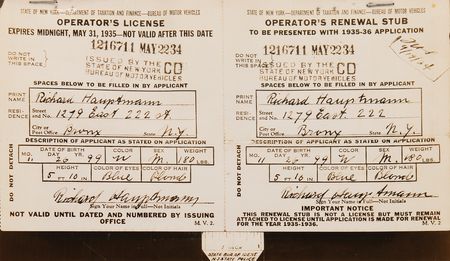 STATE OF NEW YORK—DEPARTMENT OF TAXATION AND FINANCE—BUREAU OF MOTOR VEHICLES
OPERATOR'S LICENSE
EXPIRES MIDNIGHT, MAY 31, 1935—NOT VALID AFTER THIS DATE
1216711 MAY2234
DO NOT
WRITE IN
THIS SPACE
ISSUED BY THE
STATE OF NEW YORK CO
BUREAU OF MOTOR VEHICLES
SPACES BELOW TO BE FILLED IN BY APPLICANT
PRINT
NAME Richard Hauptmann
RESI-
DENCE Street
and No. 1279 East 222 st
City or
Post Office Bronx State N.Y.
DESCRIPTION OF APPLICANT AS GIVEN ON APPLICATION
DATE OF BIRTH COLOR SEX WEIGHT
MO. 11 DAY 26 YR. 99 W M. 180 LBS.
HEIGHT COLOR OF EYES COLOR OF HAIR
5 FT 10 IN Blue Blond
DO NOT DETACH
Richard Hauptmann
Sign Your Name in Full—Not Initials
NOT VALID UNTIL DATED AND NUMBERED BY ISSUING
OFFICE M. V. 2
STATE OF NEW YORK—DEPARTMENT OF TAXATION AND FINANCE—BUREAU OF MOTOR VEHICLES
OPERATOR'S RENEWAL STUB
TO BE PRESENTED WITH 1935-36 APPLICATION
1216711 MAY2234
DO NOT
WRITE IN
THIS SPACE
ISSUED BY THE
STATE OF NEW YORK CO
BUREAU OF MOTOR VEHICLES
SPACES BELOW TO BE FILLED IN BY APPLICANT
PRINT
NAME Richard Hauptmann
RESI-
DENCE Street
and No. 1279 East 222
City or
Post Office Bronx State N.Y.
DESCRIPTION OF APPLICANT AS GIVEN ON APPLICATION
DATE OF BIRTH COLOR SEX WEIGHT
MO. 11 DAY 26 YR. 99 W M 180 LBS.
HEIGHT COLOR OF EYES COLOR OF HAIR
5 FT 10 IN Blue Blond
DO NOT DETACH
Richard Hauptmann
Sign Your Name in Full—Not Initials
IMPORTANT NOTICE
THIS RENEWAL STUB IS NOT A LICENSE BUT MUST REMAIN
ATTACHED TO LICENSE UNTIL APPLICATION IS MADE FOR RENEWAL
FOR THE YEAR 1935-1936. M. V. 2
STATE BUR OF IDENT
N J STATE POLICE